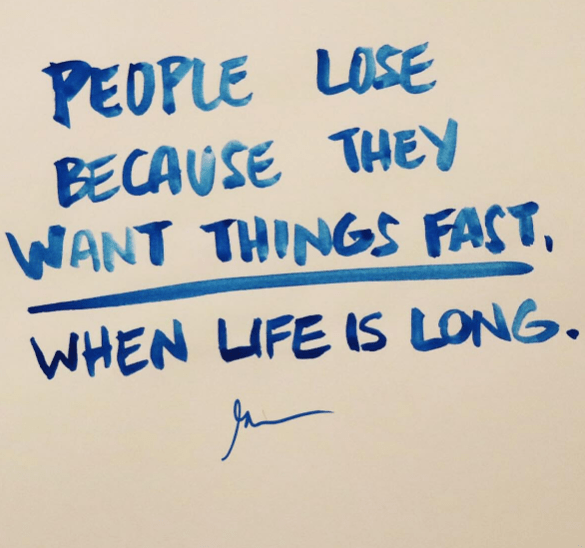 PEOPLE LOSE
BECAUSE THEY
WANT THINGS FAST,
WHEN LIFE IS LONG.